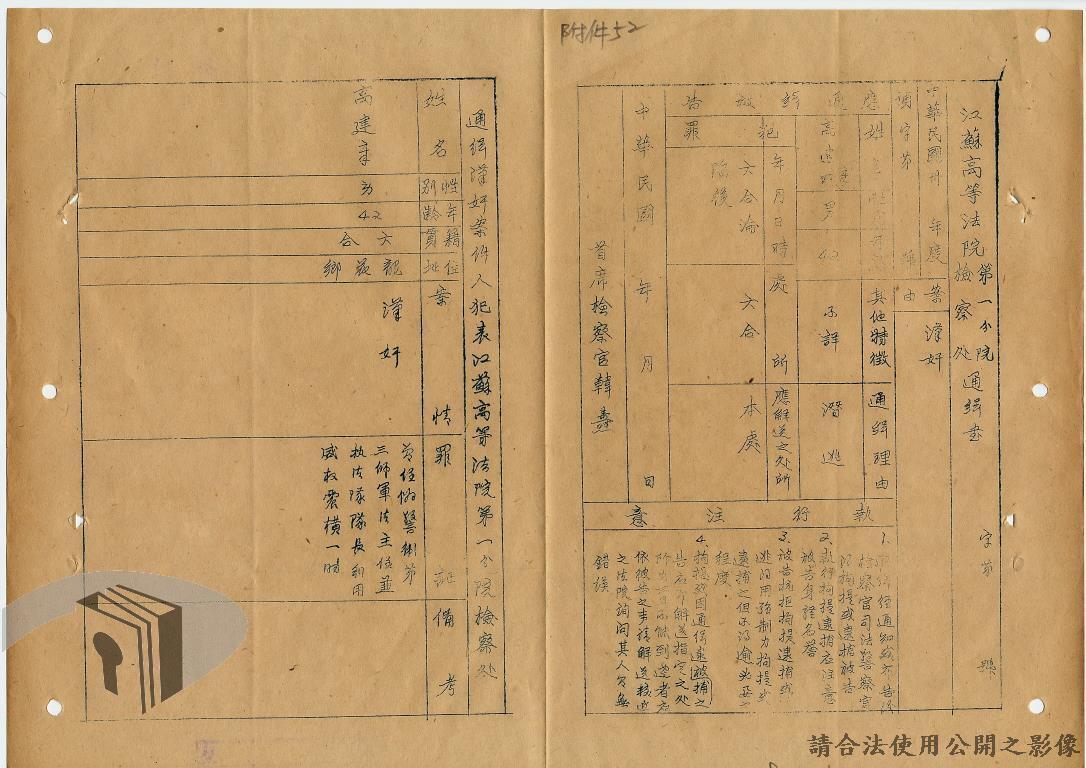 附件52
江蘇高等法院第一分院檢察处通緝書
字第
號
中華民國卅 年度
字第 號
案由
漢奸
應通緝被告
姓名
性
其他特徵
通緝理由
高建章
男
42
不詳
潛逃
犯罪
年月日時
處所
應解送之处所
六合淪陷後
六合
本處
中華民國 年 月 日
首席檢察官韓燾
執行注意
1.
檢察官司法警察官
拘提或逮捕被告
2.執行拘提逮捕应注意
被告身體名譽
3.被告抗拒拘提逮捕或
逃 用強制力拘提或
逮捕之但不得逾必要之
程度
4.拘提或因通緝逮捕之
告应即解送指定之处
所 不能到達者应
依被告之 請解送較近
之法院詢問其人有無
錯誤
通緝漢奸案件人犯表江蘇高等法院第一分院檢察处
姓名
性別
年齡
籍貫
住址
案情
罪證
備考
高建章
男
42
六合
龍 鄉
漢奸
曾任偽警衛第
三師軍法主任並
执法隊隊長利用
威权震橫一时
請合法使用公開之影像